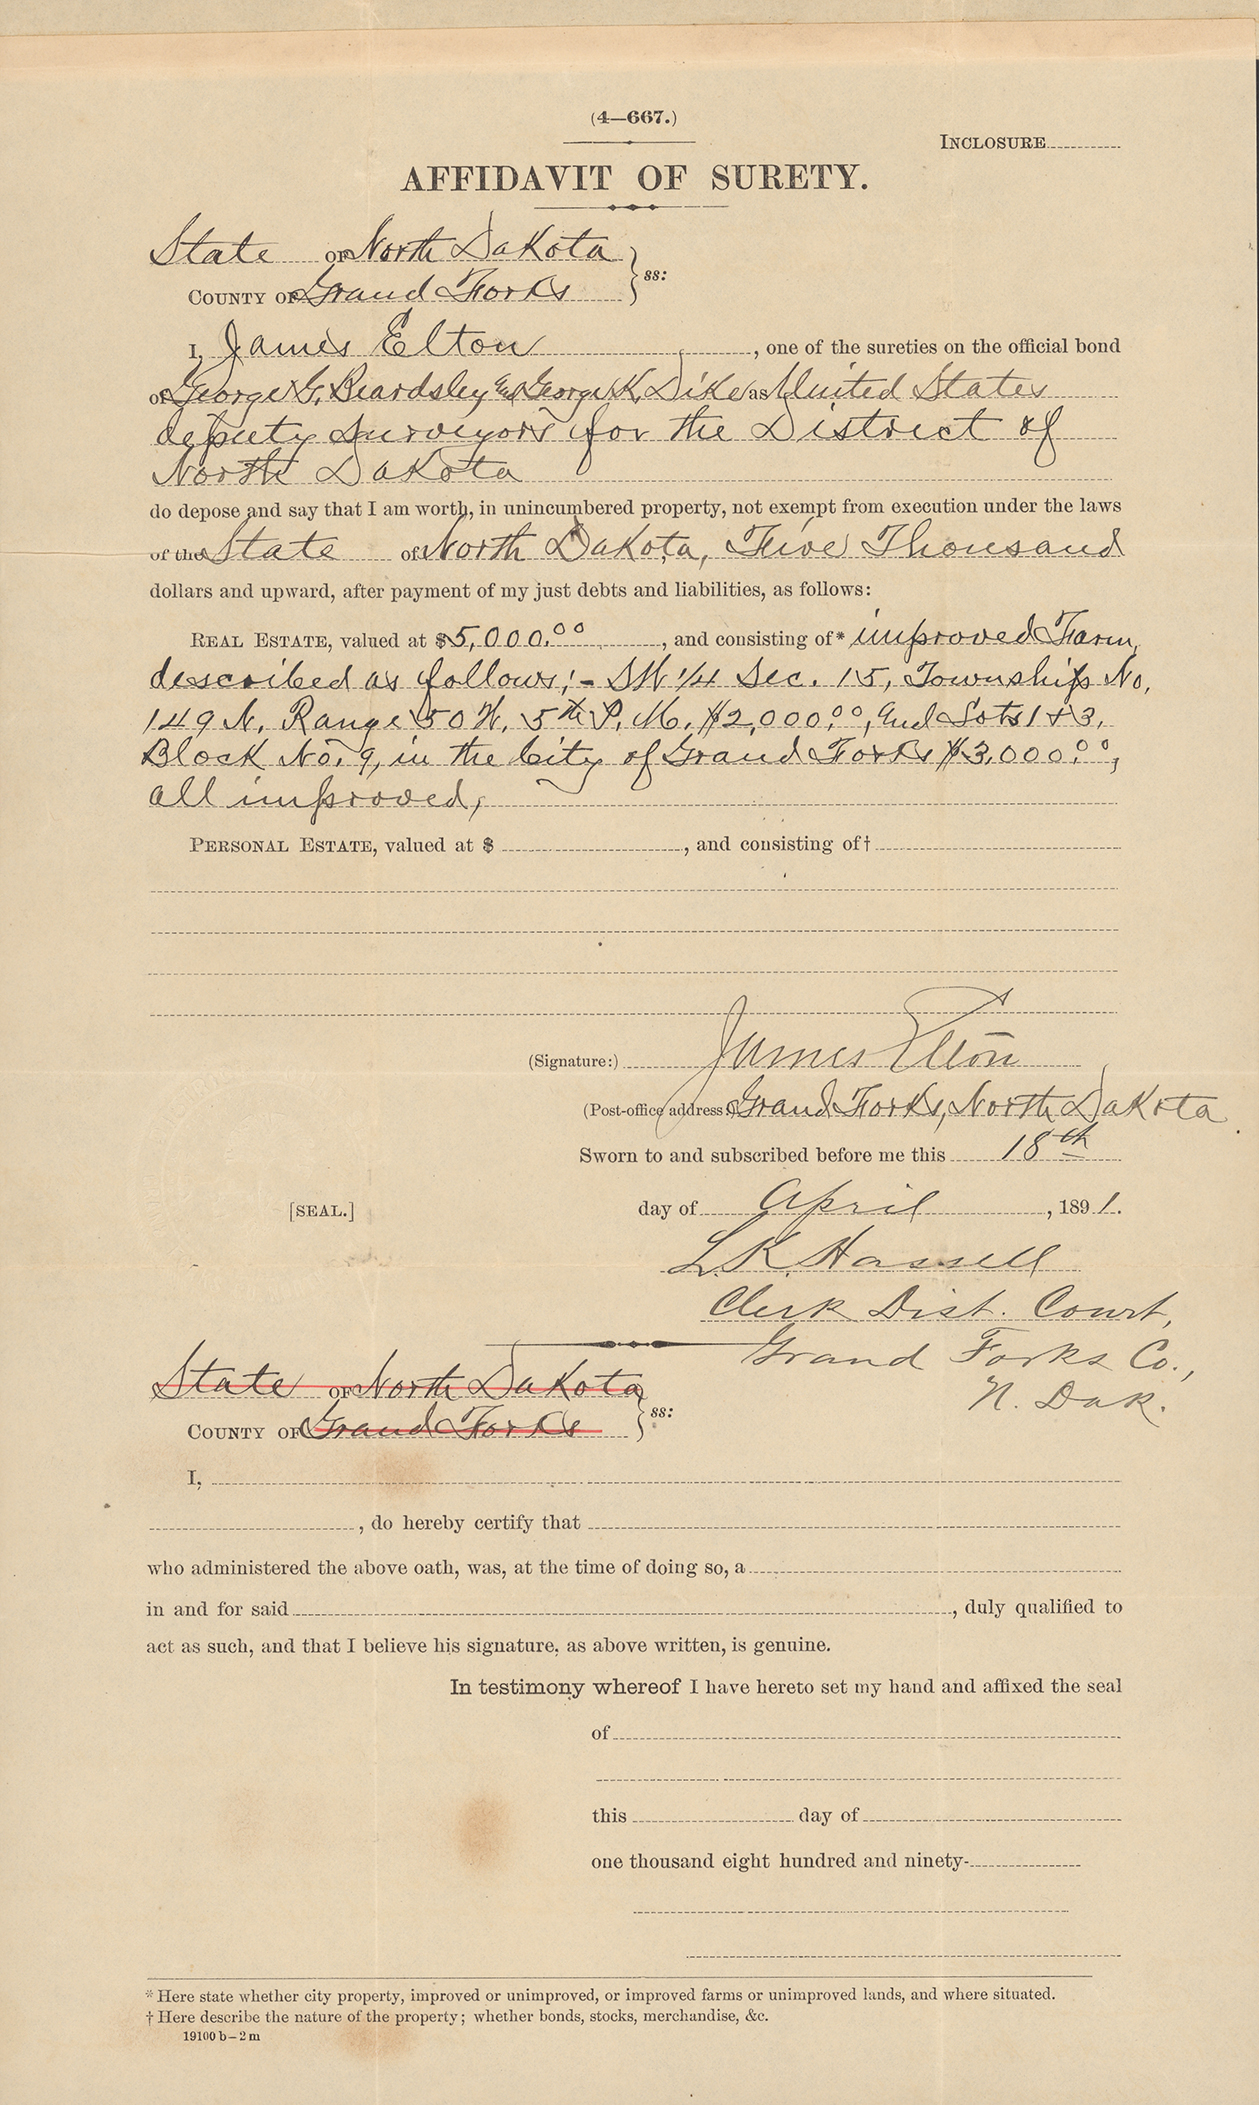 (4—667.)
INCLOSURE
AFFIDAVIT OF SURETY.
State OF North Dakota
COUNTY OF Grand Forks } ss:
I, James Elton, one of the sureties on the official bond
of George G. Beardsley and George K. Dike as United States
deputy surveyors for the District of
North Dakota
do depose and say that I am worth, in unincumbered property, not exempt from execution under the laws
of the State of North Dakota, Five Thousand
dollars and upward, after payment of my just debts and liabilities, as follows:
REAL ESTATE, valued at $5,000.00, and consisting of* improved Farm,
described as follows;- SW 1/4 Sec. 15, Township No.
149 N. Range 50 W. 5th P. M. $2,000.00, and Lots 1 + 3,
Block No. 9, in the City of Grand Forks $3,000.00,
all improved,
PERSONAL ESTATE, valued at $, and consisting of†
(Signature:) James Elton
(Post-office address:) Grand Forks, North Dakota
Sworn to and subscribed before me this 18th
[SEAL.] day of April, 1891.
L. K. Hassell
Clerk Dist. Court,
Grand Forks Co.,
N. Dak.
State OF North Dakota
COUNTY OF Grand Forks } ss:
I,
, do hereby certify that
who administered the above oath, was, at the time of doing so, a
in and for said, duly qualified to
act as such, and that I believe his signature, as above written, is genuine.
In testimony whereof I have hereto set my hand and affixed the seal
of
this day of
one thousand eight hundred and ninety-
* Here state whether city property, improved or unimproved, or improved farms or unimproved lands, and where situated.
† Here describe the nature of the property; whether bonds, stocks, merchandise, &c.
19100 b—2 m